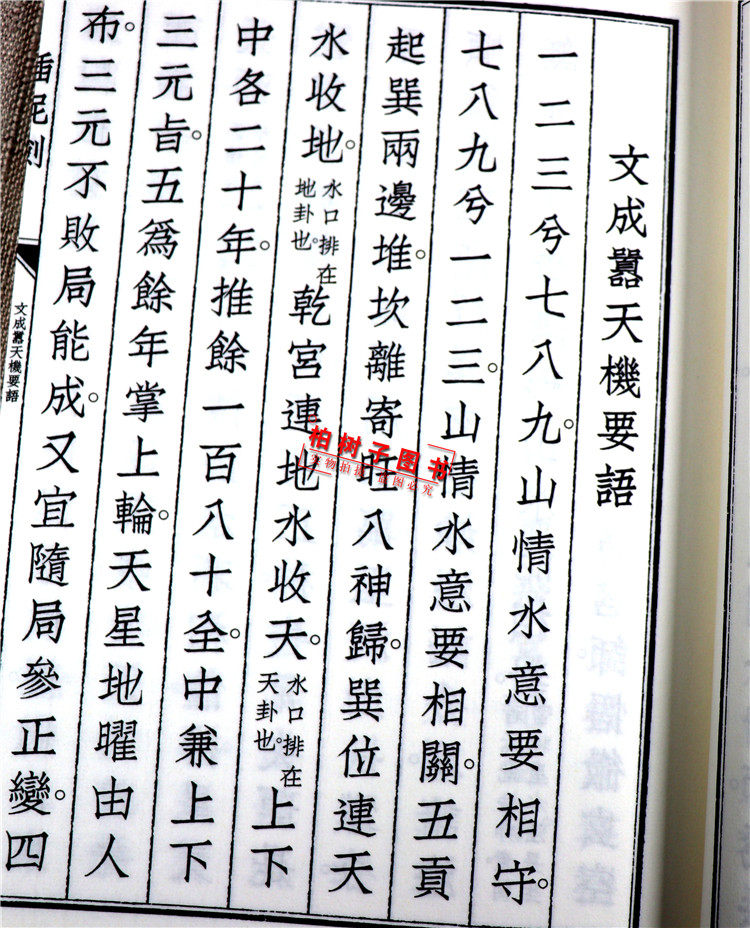 文成囂天機要語
一二三兮七八九。山情水意要相守。
七八九兮一二三。山情水意要相關。五貢
起巽兩邊堆。坎離寄旺八神歸。巽位連天
水收地。水口排在地卦也。乾宮連地水收天。水口排在天卦也。上下
中各二十年。推餘一百八十全。中兼上下
三元旨。五爲餘年掌上輪。天星地曜由人
布。三元不敗局能成。又宜隨局參正變。四
文成囂天機要語
柏树子图书
实物拍摄 盗图必究